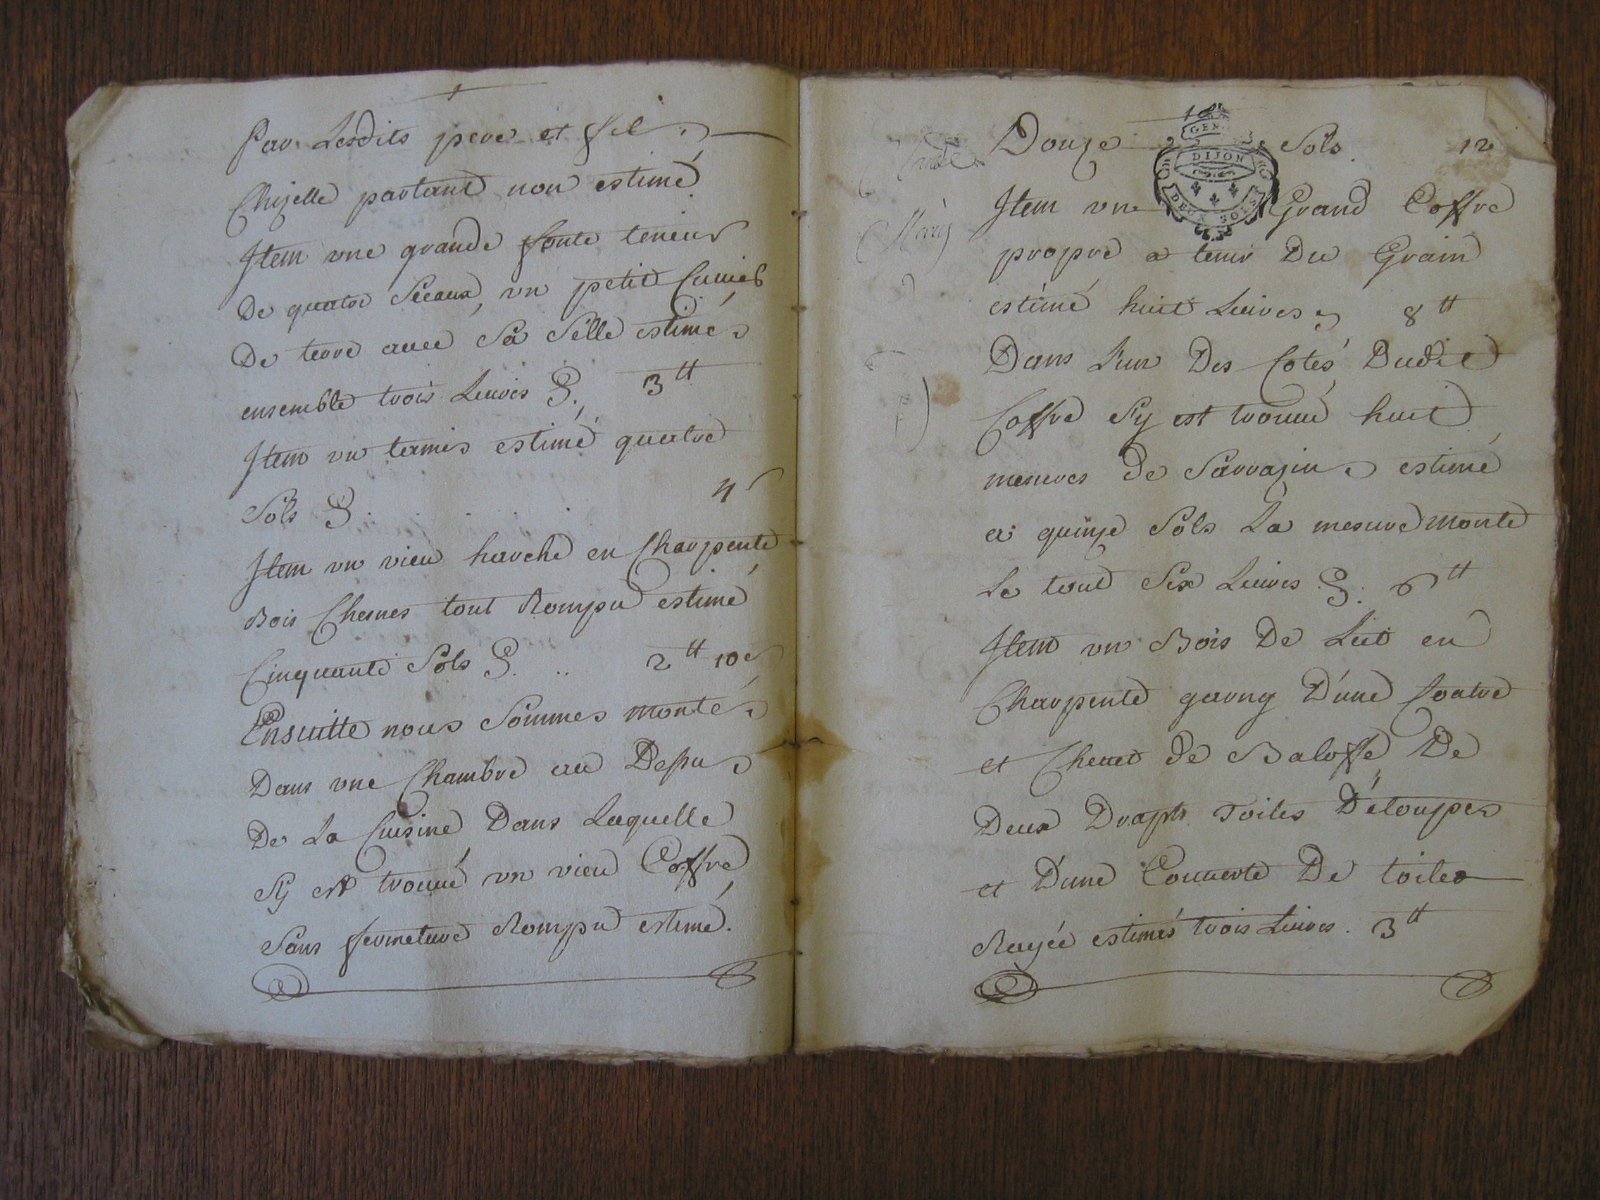 Par Lesdits pere et fil
Chizelle partant non estimé
Item une grande fonte teneur
De quatre Seeaux, un petit Cuvié
De terre avec Sa Sélle estimés
ensemble trois Livres 3tt
Item un tamis estimé quatre
Sols 4s
Item un vieu harche en Charpente
Bois Chesnes tout Rompu estimé
Cinquante Sols 2tt 10s
Ensuitte nous Sommes montés
Dans une Chambre au Depus
De La Cuisine Dans Laquelle
Sÿ est trouvé un vieu Coffre
Sans fermeture Rompu estimé.
Douze Sols 12
GEN
DIJON
DEUX SOLS
Item un Grand Coffre
propre a tenir Du Grain
estimé huit Livres 8tt
Dans L'un Des Cotés Dudit
Coffre Sÿ est trouvé huit
mesures de Sarrazin estimé
a quinze Sols La mesure monte
Le tout Six Livres 6tt
Item un Bois De Lit en
Charpente garny D'une Coatre
et Chevet de Baloffe De
Deux Draps Toiles D'étoupes
et D'une Couverte De toiles
Rayée estimés trois Livres. 3tt